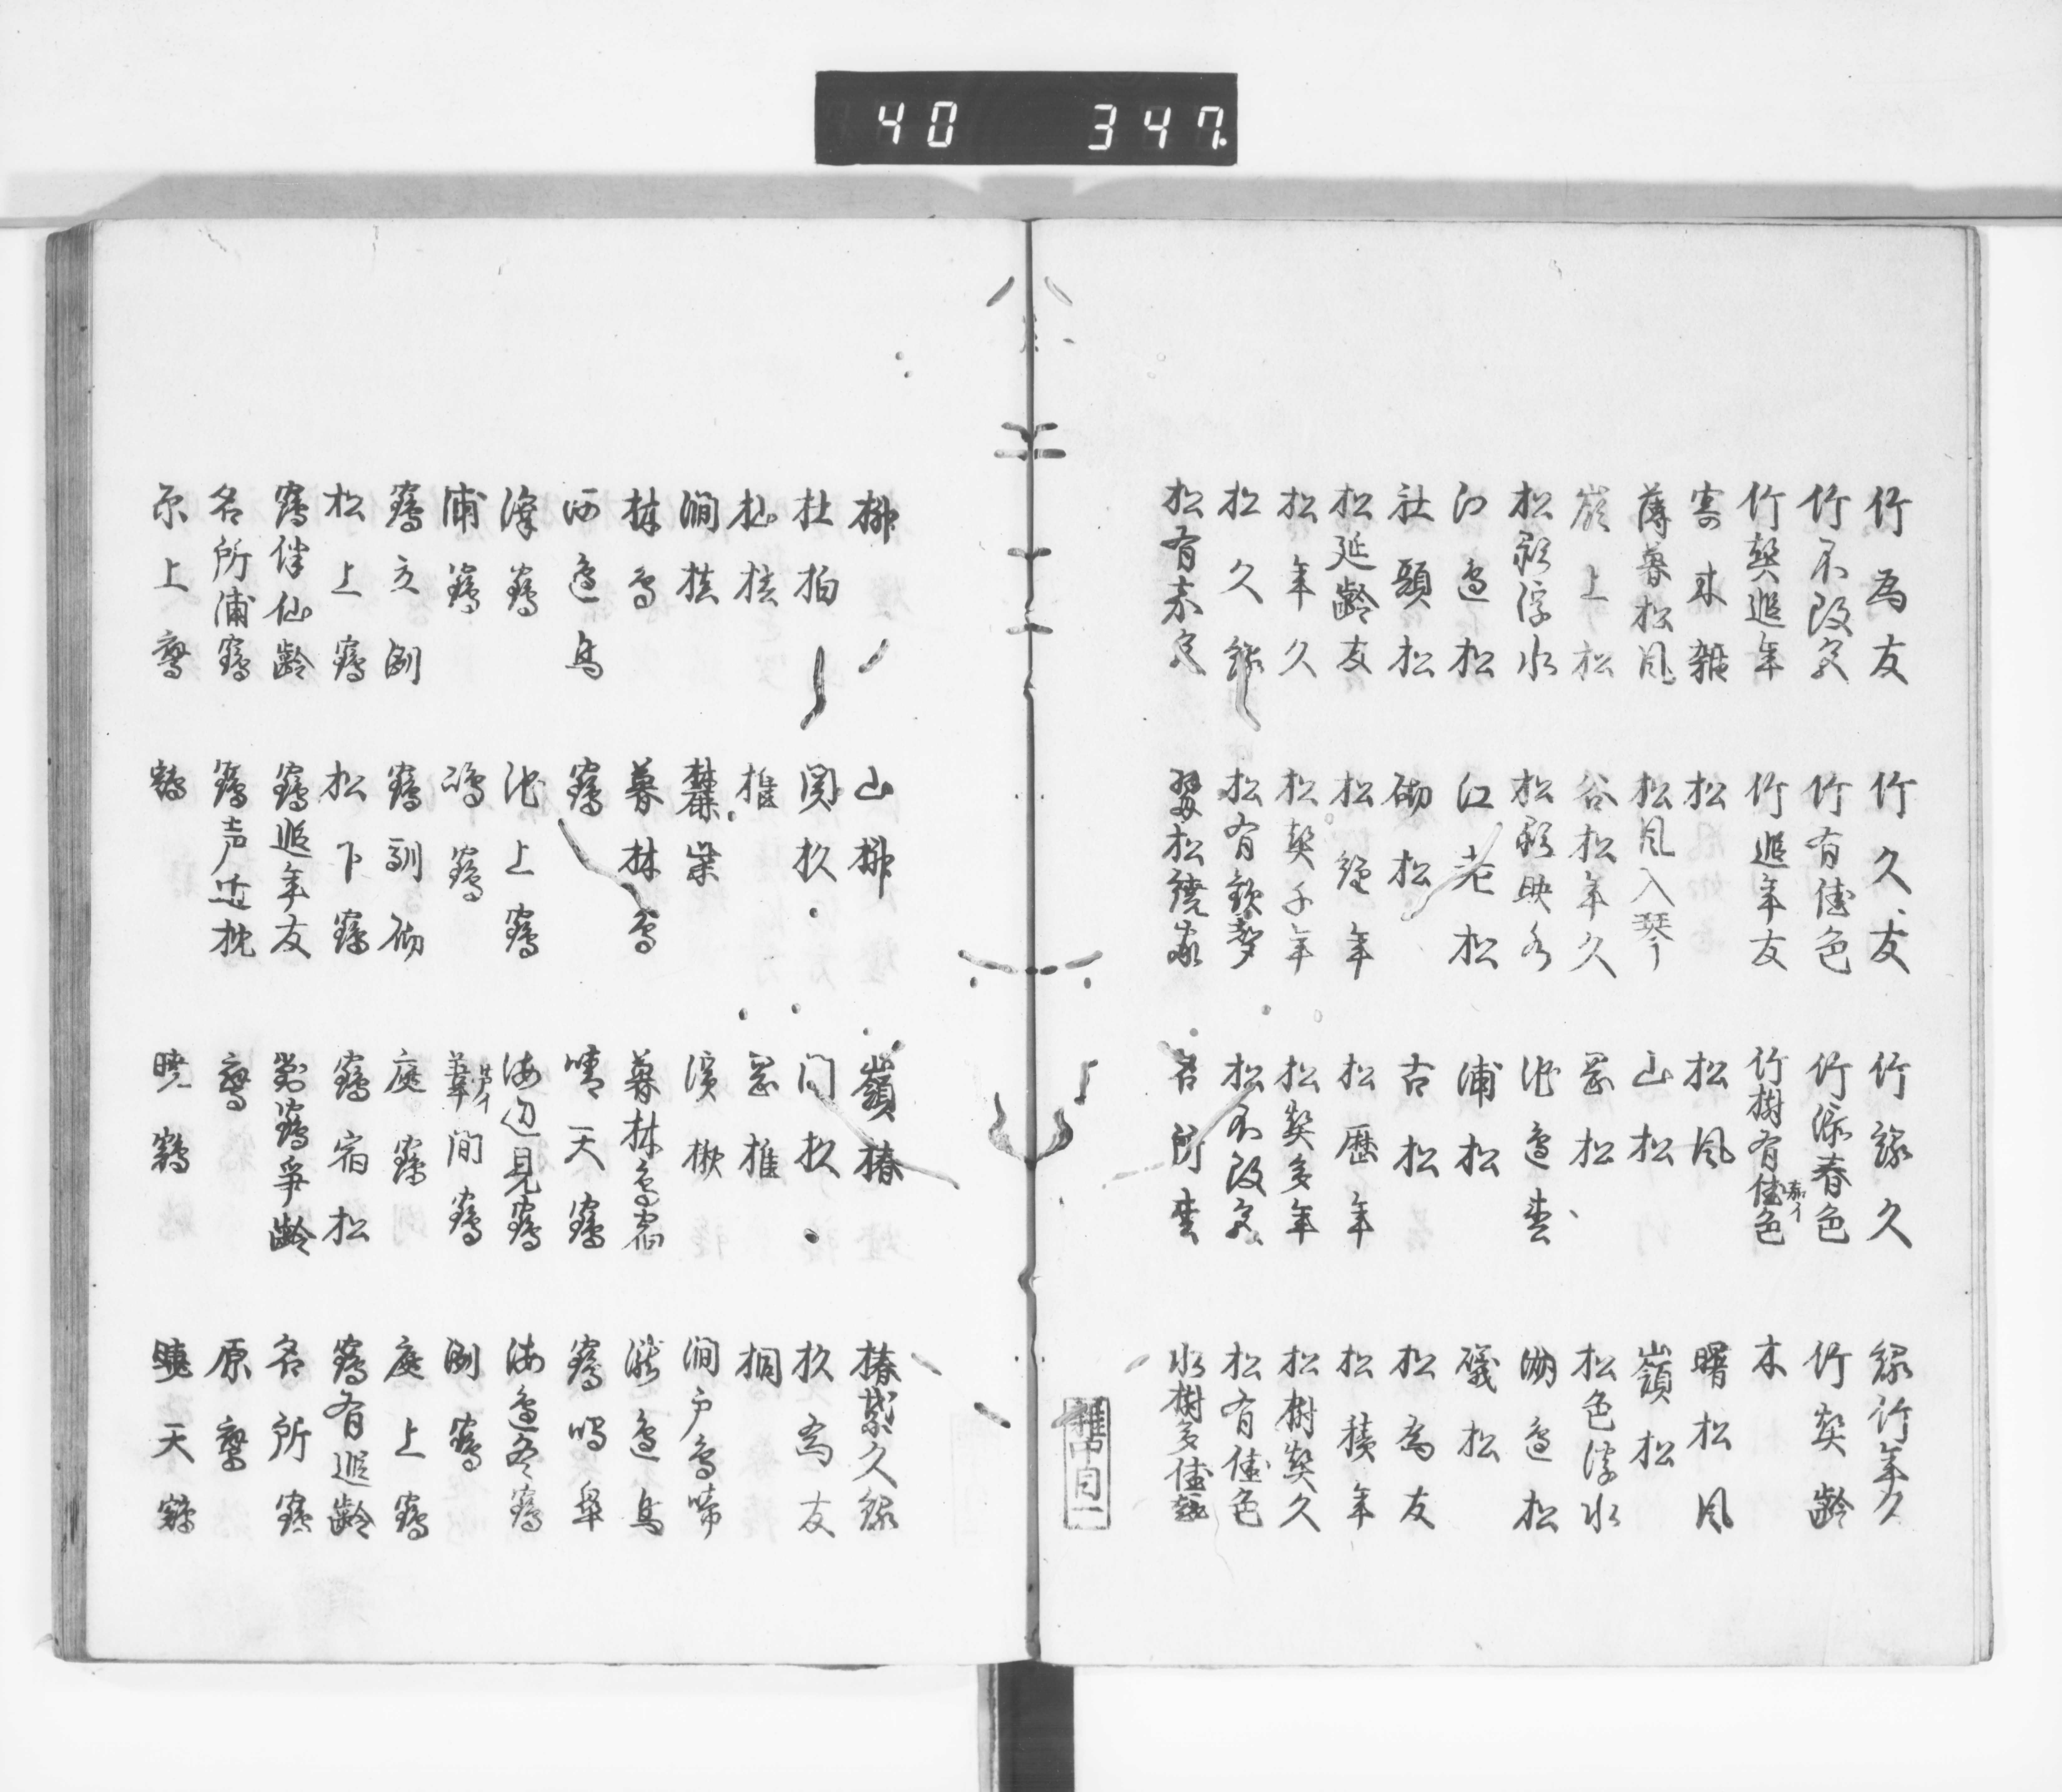 40 347
竹為友 竹久友 竹緑久 緑竹年久
竹不改色 竹有佳色 竹添春色 竹契齢
竹契遐年 竹遐年友 竹樹有佳色 木
寄木雑 松 松風 曙松風
薄暮松風 松風入琴 山松 嶺松
嶺上松 谷松年久 岡松 松色浮水
松影浮水 松影映水 池辺松 湖辺松
江辺松 江老松 浦松 磯松
社頭松 砌松 古松 松為友
松延齢友 松経年 松歴年 松積年
松年久 松契千年 松契多年 松樹契久
松久緑 松有歓声 松不改色 松有佳色
松有 翠松繞家 松 水樹多佳
雑中目一
椰 山椰 嶺椿 椿葉久緑
杜柏 関杉 門杉 杉為友
椎 岡椎 桐
澗 麓柴 濱楸 澗戸鳥啼
林鳥 暮林鳥 暮林鳥宿 瀧辺鳥
河辺鳥 鶴 晴天鶴 鶴鳴皐
澤鶴 池上鶴 海辺見鶴 海辺冬鶴
浦鶴 嶋鶴 葦間鶴 洲鶴
鶴立洲 鶴馴砌 庭鶴 庭上鶴
松上鶴 松下鶴 鶴宿松 鶴有遐齢
鶴伴仙齢 鶴遐年友 對鶴争齢 名所鶴
名所浦鶴 鶴声近枕 鷺 原鷺
原上鷺 鶏 暁鶏 暁天鶏